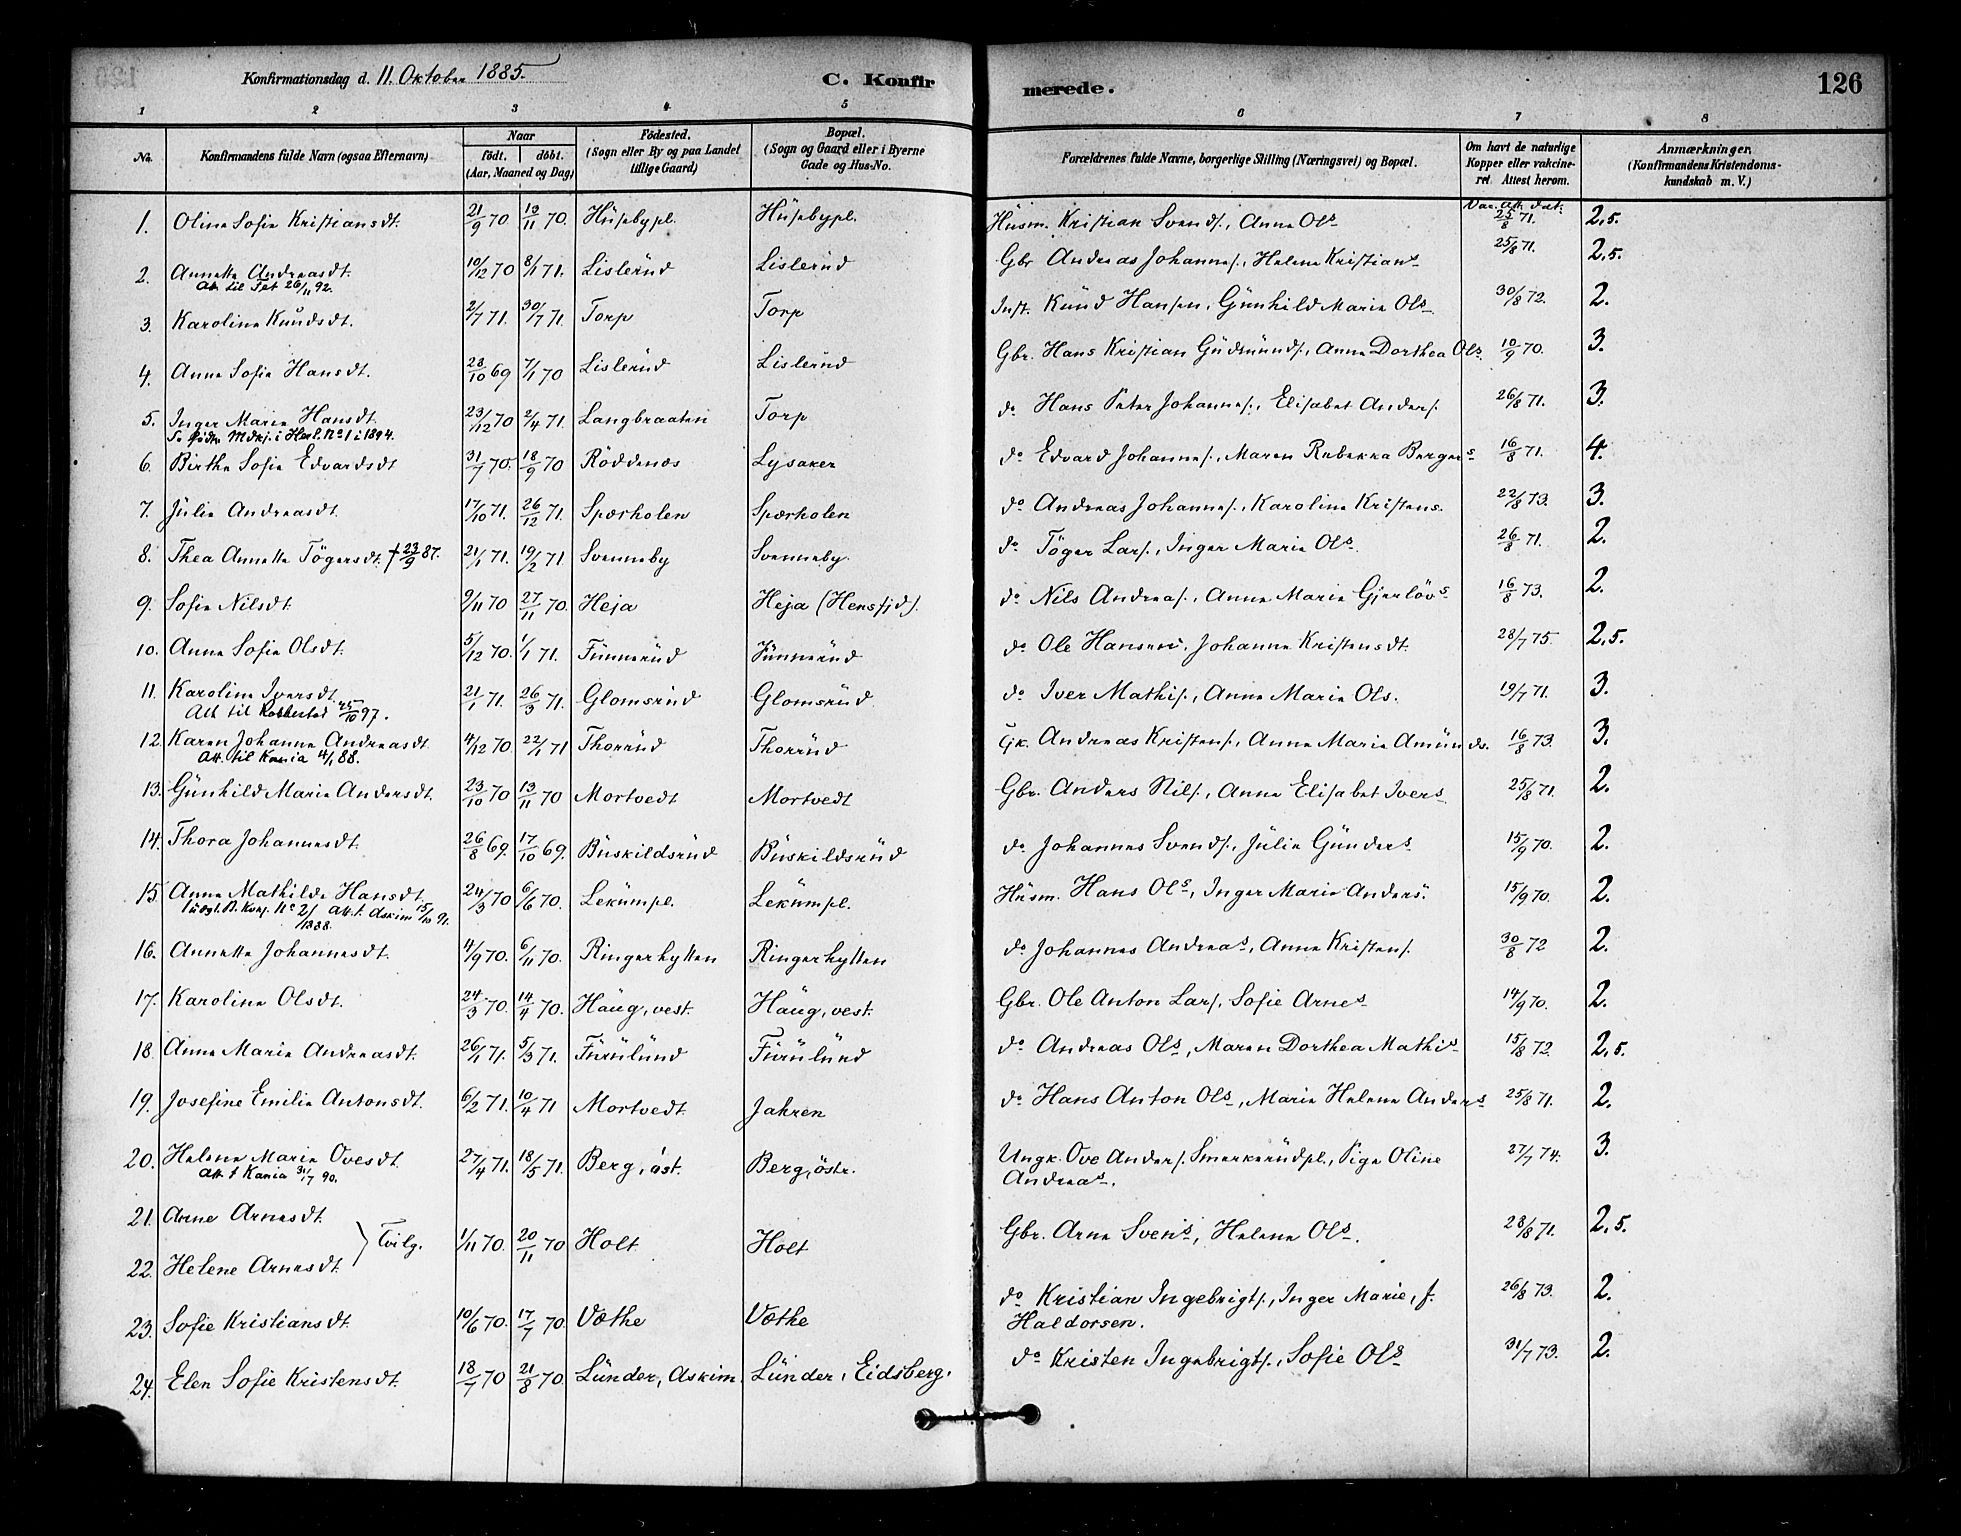 Konfirmationsdag d. 11. Oktober 1885. C. Konfirmerede. 126
1 2 3 4 5 6 7 8
No. Konfirmandens fulde Navn (ogsaa Efternavn) Naar født. døbt. (Aar, Maaned og Dag) Födested. (Sogn eller By og paa Landet tillige Gaard) Bopæl. (Sogn og Gaard eller i Byerne Gade og Hus-No. Forældrenes fulde Navne, borgerlige Stilling (Næringsvei) og Bopæl. Om havt de naturlige Kopper eller vakcineret. Attest herom. Anmærkninger. (Konfirmandens Kristendomskundskab m. V.)
Vac. Att. dat.
1. Olina Sofie Kristiansdt. 21/9 70 13/11 70. Hüsebypl. Hüsebypl. Hüsm. Kristian Svends., Anna Ols 25/8 71. 2,5.
2. Annette Andreasdt. 10/12 70 8/1 71. Lislerüd Lislerüd Gbr Andreas Johannes., Helene Kristians 25/8 71. 2,5.
Att. til Tet 26/11 92.
3. Karoline Knüdsdt. 2/7 71. 30/7 71. Torp Torp Inst. Knüd Hansen, Günhild Marie Ols 30/8 72. 2.
4. Anna Sofie Hansdt. 23/10 69 7/1 70 Lislerüd Lislerüd Gbr. Hans Kristian Güdmünds., Anna Dorthea Ols. 10/9 70. 3.
5. Inger Marie Hansdt. 23/12 70 2/4 71. Langbraaten Torp do Hans Peter Johannes., Elisabet Anders. 26/8 71. 3.
Mdkj. i Herl. No 1 i 1894.
6. Birthe Sofie Edvardsdt 31/7 70. 18/9 70 Röddenæs Lysaker do Edvard Johannes., Maren Rebekka Bergers 16/8 71. 4.
7. Jülie Andreasdt. 17/10 71. 26/12 71. Spærholen Spærholen do Andreas Johannes., Karoline Kristens. 22/8 73. 3.
8. Thea Annette Tögersdt. † 23/9 87. 21/1 71. 19/2 71 Svenneby Svenneby. do Töger Lars., Inger Marie Ols. 26/8 71. 2.
9. Sofie Nilsdt. 9/11 70 27/11 70. Heja Heja (Hensfjd). do Nils Andreas., Anna Marie Gjerlövs 16/8 73. 2.
10. Anna Sofie Olsdt. 5/12 70. 1/1 71. Fünnerüd Fünnerüd do Ole Hansen. Johanna Kristensdt. 28/7 75. 2,5.
11. Karoline Iversdt. 21/1 71. 26/3 71. Glomsrüd Glomsrüd do Iver Mathis., Anna Marie Ols. 19/7 71. 3.
Att til Rakkestad 25/10 97.
12. Karen Johanne Andreasdt. 4/12 70. 22/1 71 Thorrüd Thorrüd Gk. Andreas Kristens., Anna Marie Amünds. 16/8 73. 3.
Att. til Kania 4/1 88.
13. Günhild Marie Andersdt. 23/10 70 13/11 70 Mortvedt Mortvedt Gbr. Anders Nils., Anna Elisabet Ivers 25/8 71. 2.
14. Thora Johannesdt. 26/8 69. 17/10 69. Büskildsrüd Büskildsrüd do Johannes Svends., Jülie Günders 15/9 70. 2.
15. Anna Mathilde Hansdt. 24/3 70 6/6 70. Lekümpl. Lekümpl. Hüsm. Hans Ols, Inger Marie Anders. 15/9 70. 2.
No 21 Att. t. Askim 15/10 91.
1888.
16. Annette Johannesdt. 4/9 70. 6/11 70. Ringerhytten Ringerhytten do Johannes Andreas, Anna Kristens. 30/8 72 2.
17. Karoline Olsdt. 24/3 70. 14/4 70. Haüg, vest. Haüg, vest. Gbr. Ole Anton Lars., Sofie Arnes 14/9 70. 2.
18. Anna Marie Andreasdt. 26/1 71. 5/3 71. Fürülünd Fürülünd do Andreas Ols, Maren Dorthea Mathis 15/8 72. 2,5.
19. Josefine Emilie Antonsdt. 6/2 71. 10/4 71 Mortvedt. Jahren do Hans Anton Ols, Marie Helene Anders 25/8 71. 2.
20. Helene Marie Ovesdt. 27/4 71. 18/5 71. Berg, öst. Berg, östr. Ungk. Ove Anders. Smerkerüdpl., Pige Oline 27/7 74. 3.
Att. t Kania 31/7 90. Andreas.
21. Arne Arnesdt.
Tvilg. 1/11 70. 20/11 70 Holt Holt Gbr. Arne Svens, Helene Ols. 28/8 71. 2,5.
22. Helene Arnesdt.
23. Sofie Kristiansdt. 10/6 70. 17/7 70. Væthe Væthe do Kristian Ingebrigts., Inger Marie, f. 26/8 73. 2.
Haldorsen.
24. Elen Sofie Kristensdt. 18/7 70 21/8 70. Lünder, Askim. Lünder, Eidsberg. do Kristen Ingebrigts., Sofie Ols 31/7 73. 2.